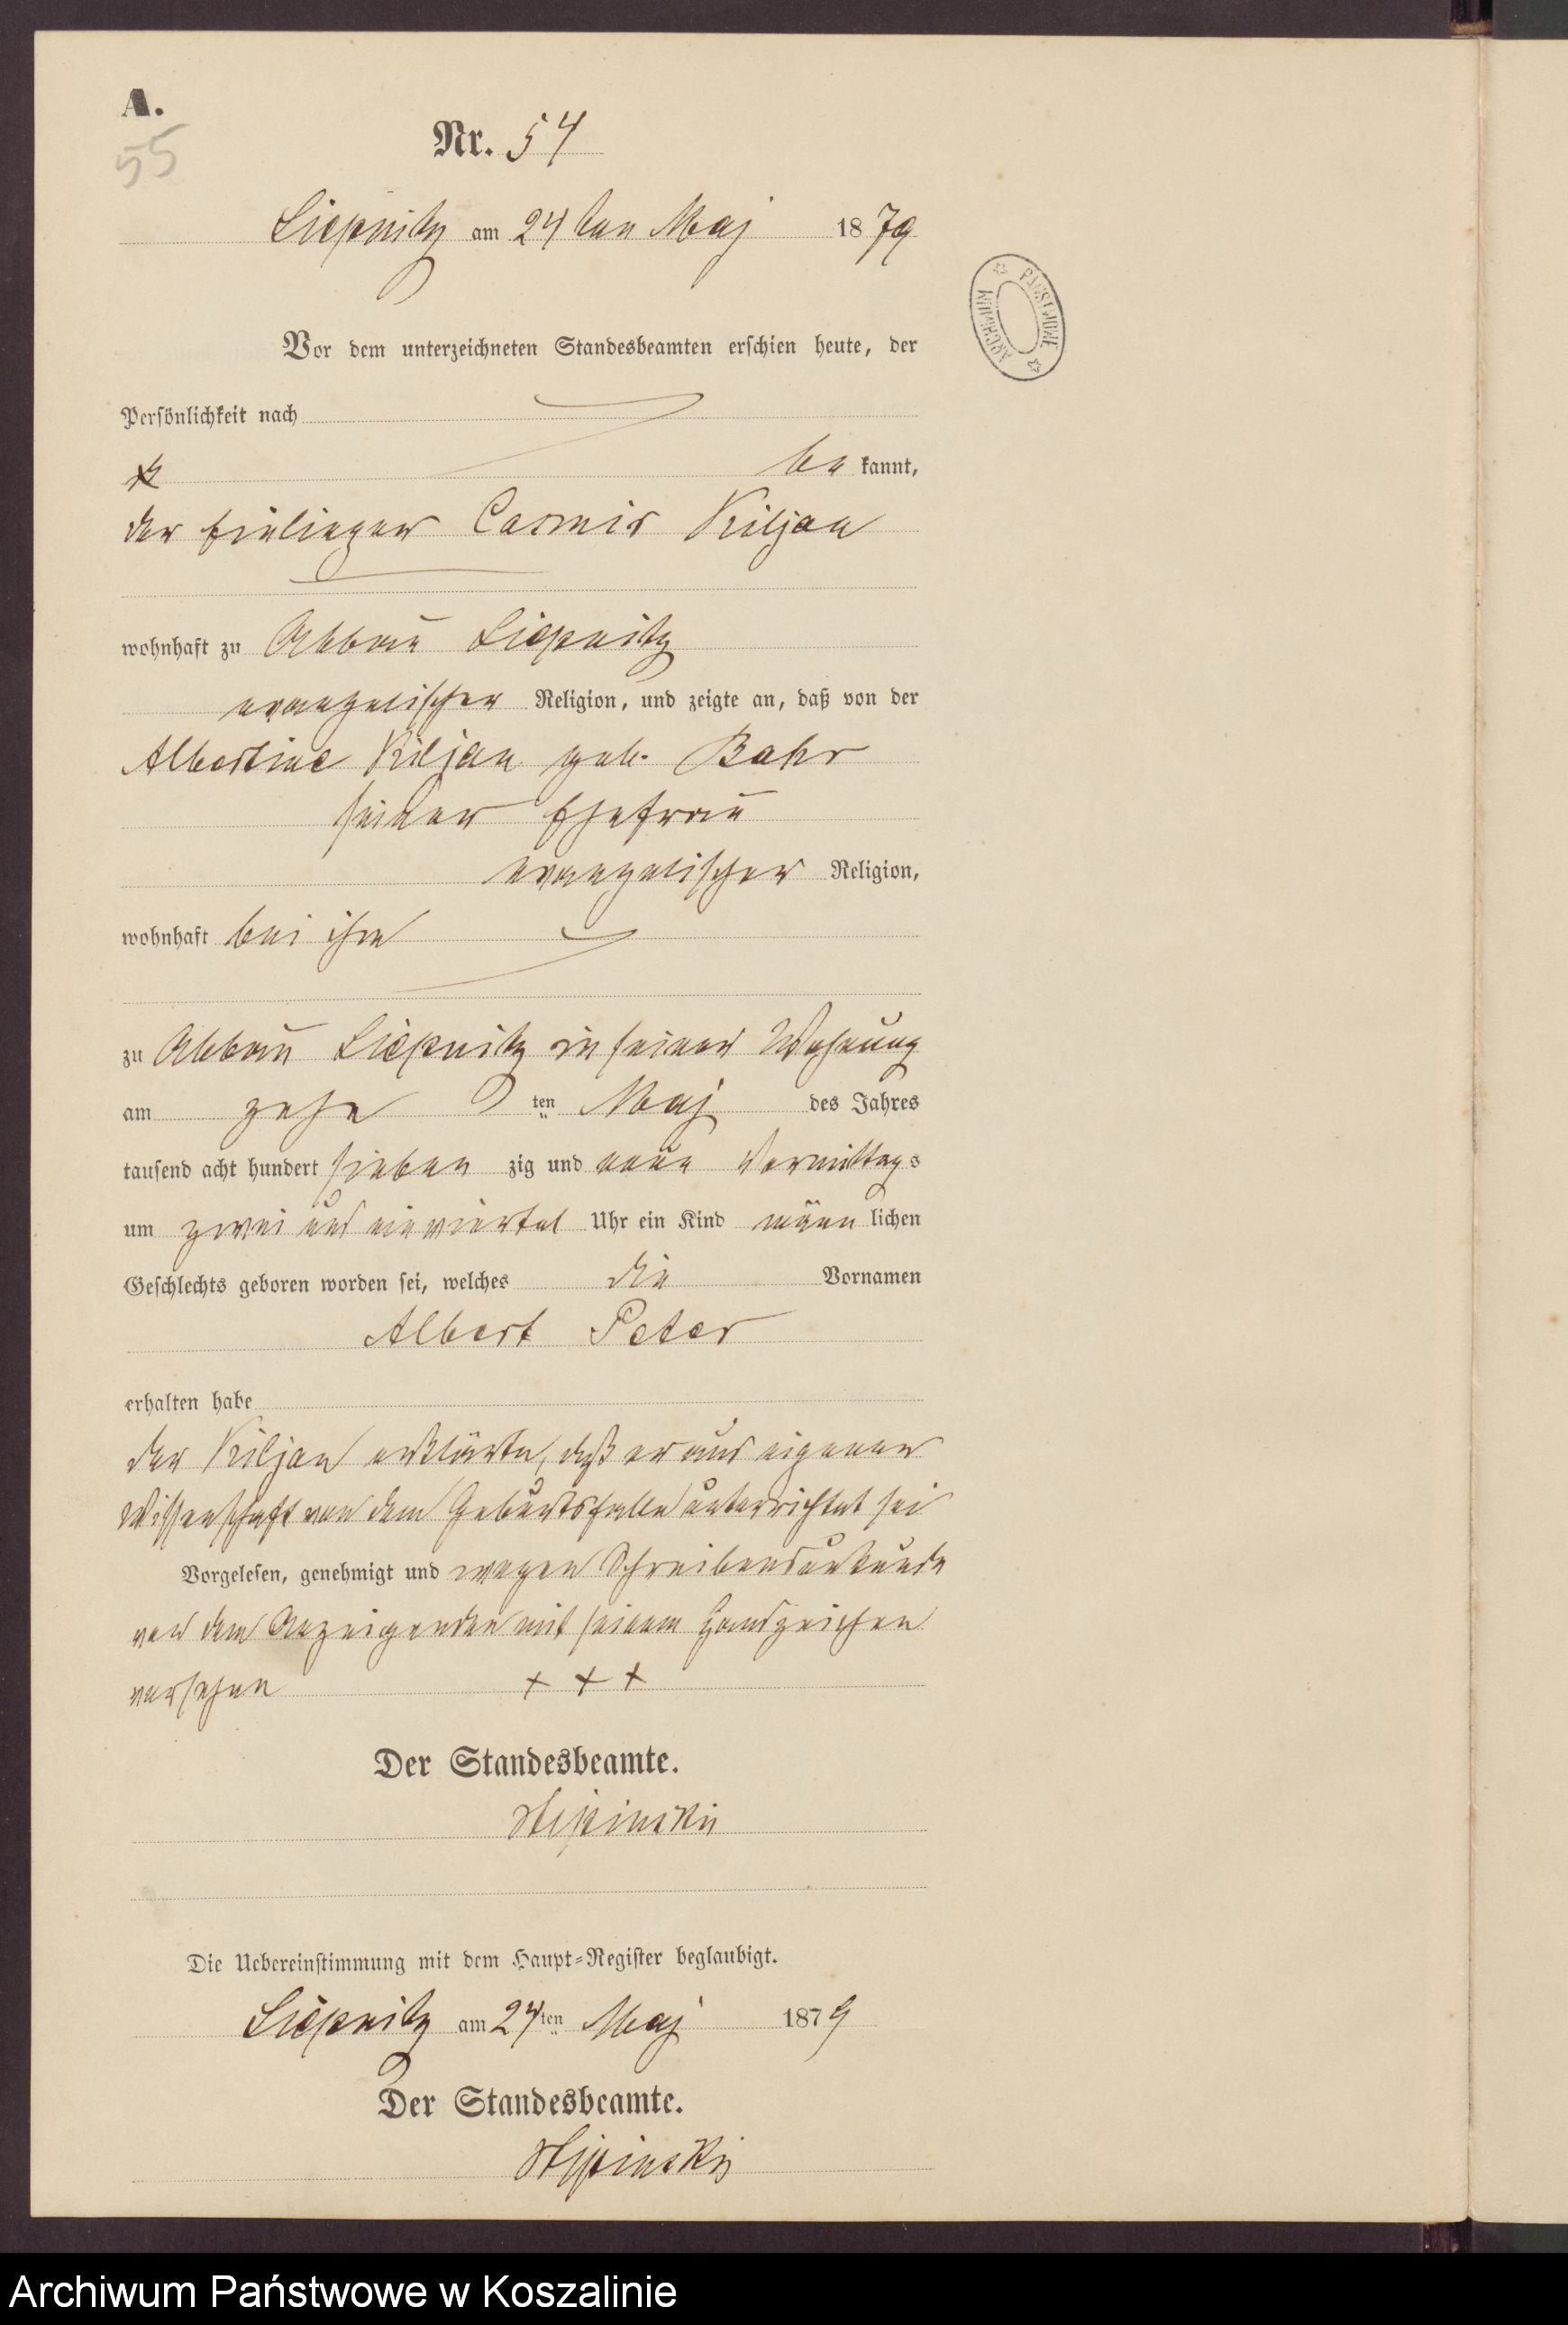 A.
55
Nr. 54
Liepnitz am 24 ten Maj 1879
Vor dem unterzeichneten Standesbeamten erschien heute, der
Persönlichkeit nach
be kannt,
der Einlieger Casmir Kiljan
wohnhaft zu Abbau Liepnitz
evangelischer Religion, und zeigte an, daß von der
Albertine Kiljan geb. Bahr
seiner Ehefrau
evangelischer Religion,
wohnhaft bei ihm
zu Abbau Liepnitz in seiner Wohnung
am zehn ten Maj des Jahres
tausend acht hundert sieben zig und neun Vormittags
um zwei und ein viertel Uhr ein Kind männ lichen
Geschlechts geboren worden sei, welches die Vornamen
Albert Peter
erhalten habe
der Kiljan erklärte, daß er aus eigener
Wissenschaft von dem Geburtsfalle unterrichtet sei
Vorgelesen, genehmigt und wegen Schreibensunkunde
von dem Anzeigenden mit seinem Handzeichen
versehen + + +
Der Standesbeamte.
Die Uebereinstimmung mit dem Haupt-Register beglaubigt.
Liepnitz am 24ten Maj 1879
Der Standesbeamte.
ARCHIWUM PAŃSTWOWE
Archiwum Państwowe w Koszalinie